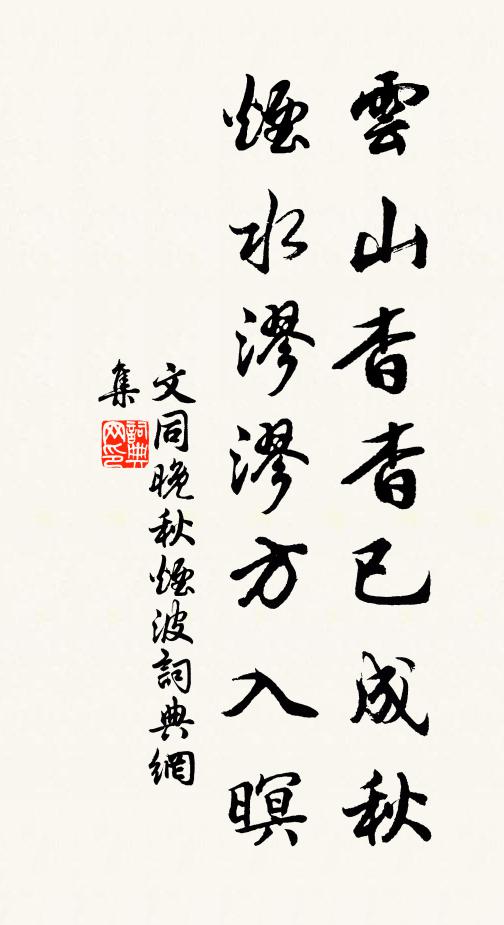 雲山杳杳已成秋
煙水漻漻方入暝
文同晚秋煙波詞典網
集
詞典网印